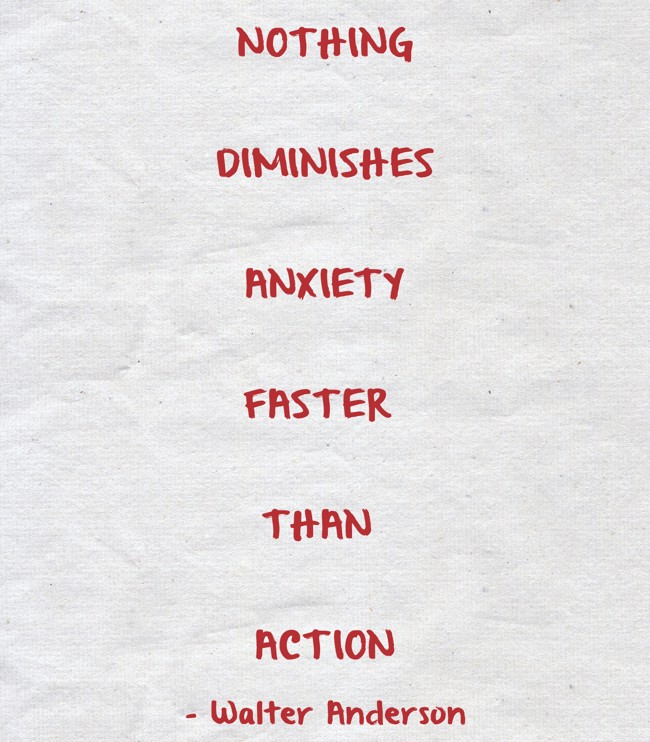 NOTHING
DIMINISHES
ANXIETY
FASTER
THAN
ACTION
- Walter Anderson